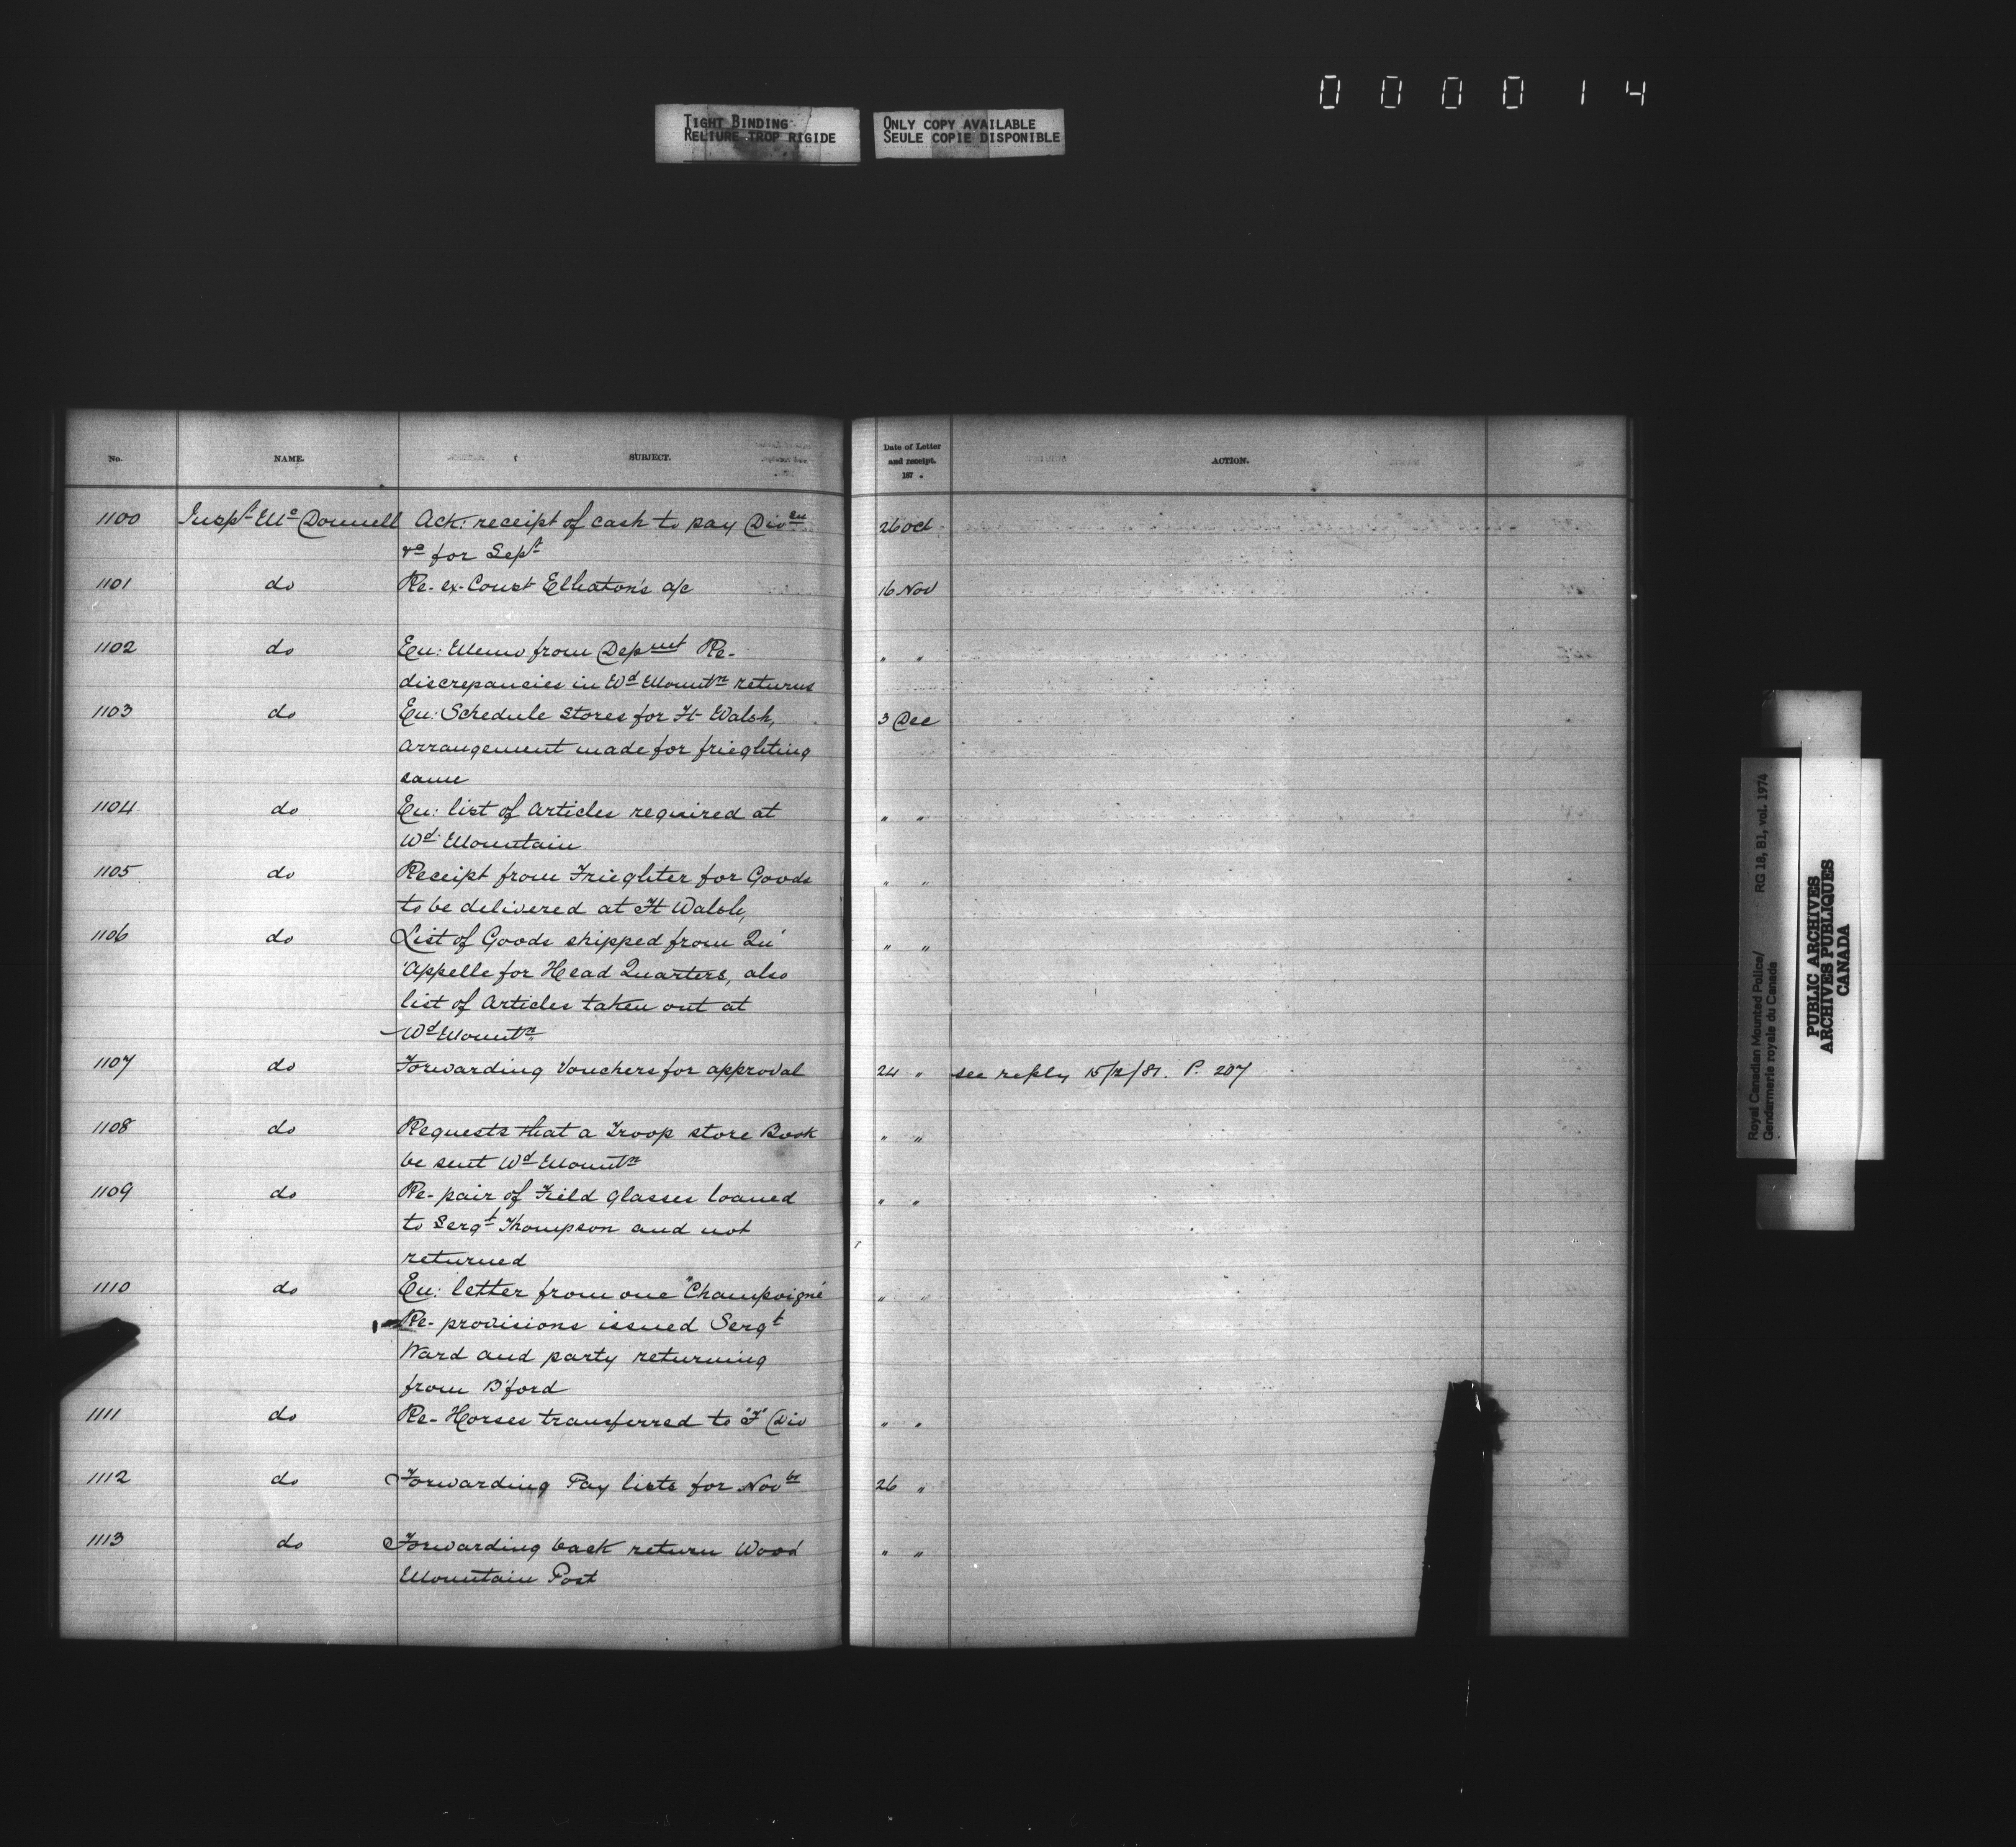 000014
TIGHT BINDING
RELIURE TROP RIGIDE
ONLY COPY AVAILABLE
SEULE COPIE DISPONIBLE
No. NAME. SUBJECT. Date of Letter and receipt. 187 . ACTION.
1100 Inspt McDonnell Ack: receipt of cash to pay Divon 26 Oct
&c for Sept
1101 do Re- ex-Const Elheaton's a/c 16 Nov
1102 do En: Memo from Depmt Re- " "
discrepancies in Wd Mountn returns
1103 do En: Schedule stores for Ft Walsh, 3 Dec
arrangement made for frieghting
same
1104 do En: list of articles required at " "
Wd Mountain
1105 do Receipt from Frieghter for Goods " "
to be delivered at Ft Walsh,
1106 do List of Goods shipped from Qu' " "
'Appelle for Head Quarters, also
list of Articles taken out at
Wd Mountn
1107 do Forwarding Vouchers for approval 24 " see reply 15/2/81. P. 207
1108 do Requests that a Troop store Book " "
be sent Wd Mountn
1109 do Re- pair of Field glasses loaned " "
to Sergt Thompson and not
returned
1110 do En: letter from one "Champoigné " "
Re- provisions issued Sergt
Ward and party returning
from B'ford
1111 do Re- Horses transferred to "F" Div " "
1112 do Forwarding Pay lists for Novbr 26 "
1113 do Forwarding back return Wood " "
Mountain Post
Royal Canadian Mounted Police/
Gendarmerie royale du Canada
RG 18, B1, vol. 1974
PUBLIC ARCHIVES
ARCHIVES PUBLIQUES
CANADA